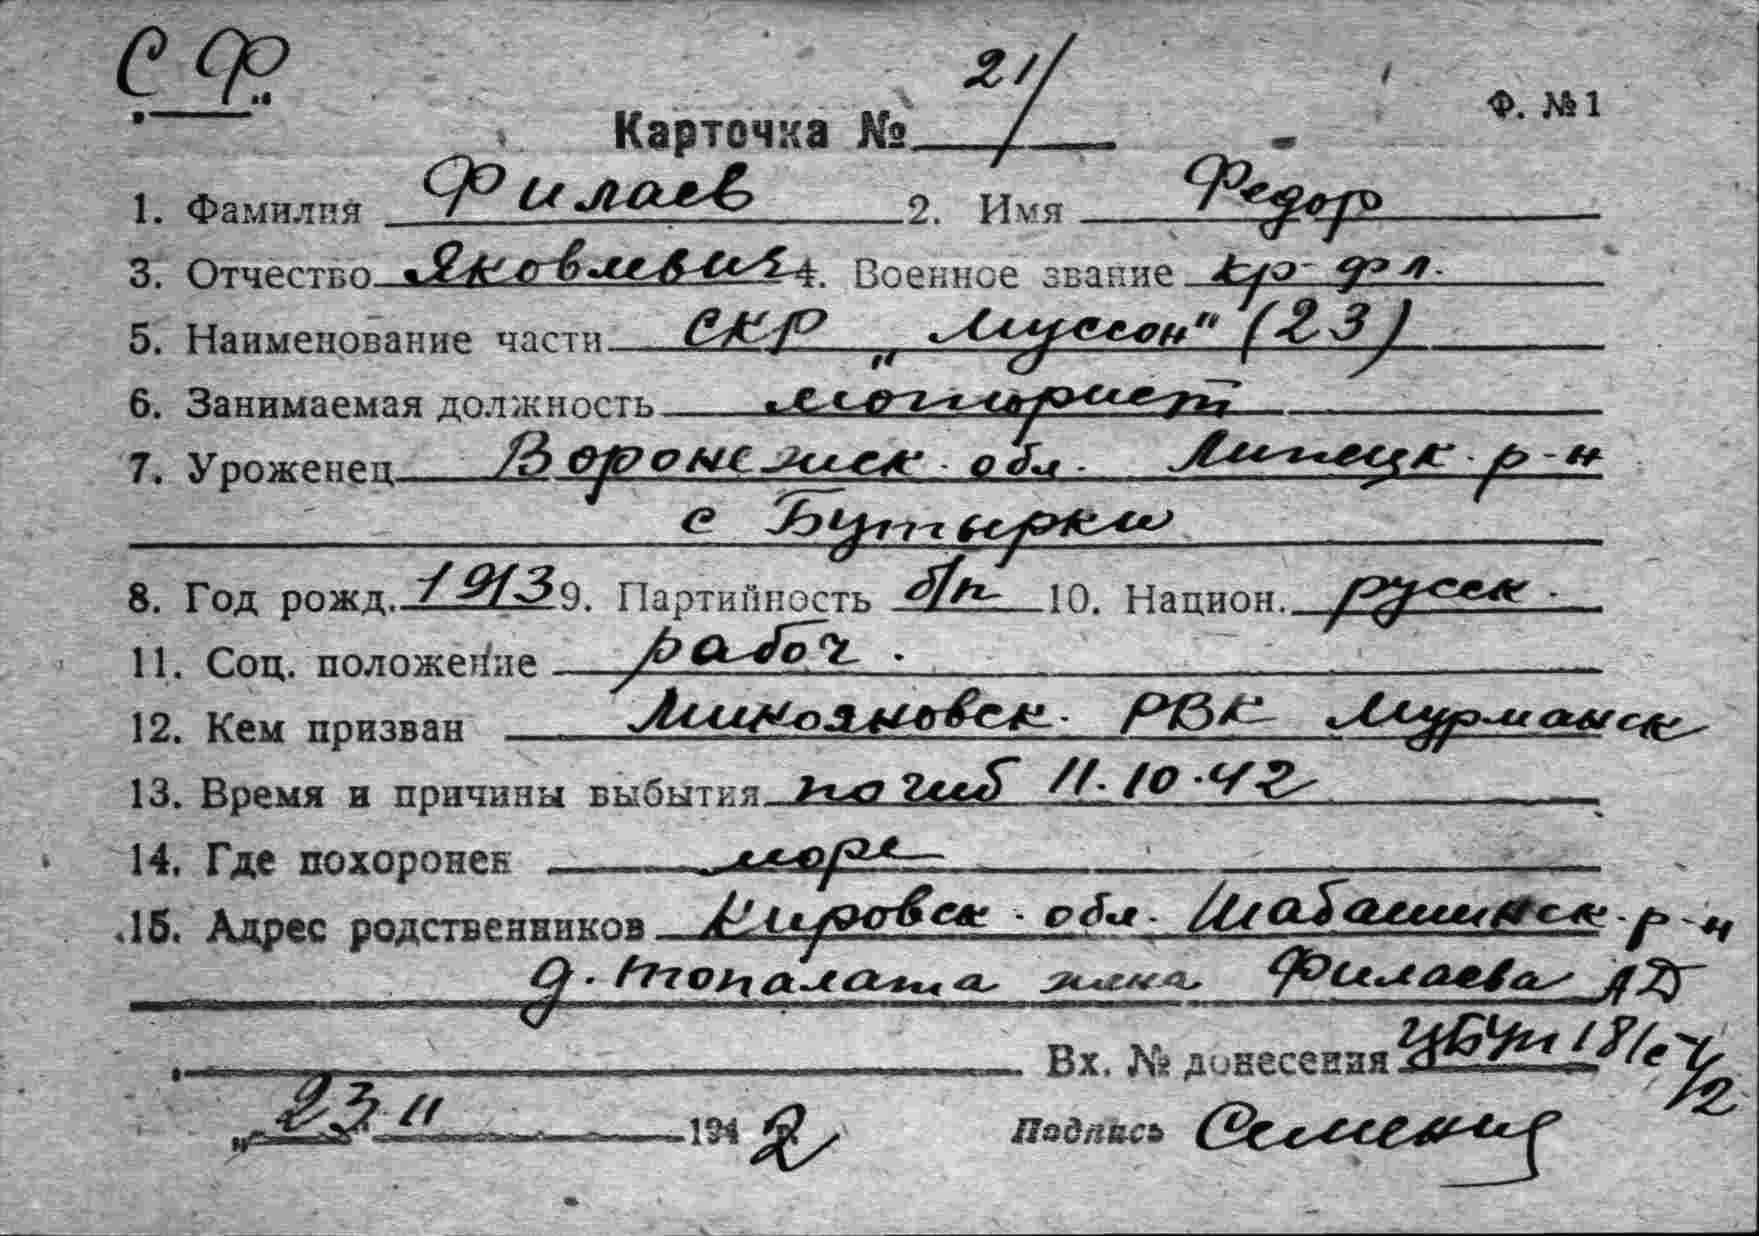 СФ
21/
Карточка № Ф. №1
1. Фамилия Филаев 2. Имя Федор
3. Отчество Яковлевич 4. Военное звание кр-фл.
5. Наименование части СКР „Муссон" (23)
6. Занимаемая должность моторист
7. Уроженец Воронежск. обл. Липецк. р-н
с Бутырки
8. Год рожд. 1913 9. Партийность б/п 10. Национ. русск.
11. Соц. положение рабоч.
12. Кем призван Микояновск. РВК Мурманск
13. Время и причины выбытия погиб 11.10.42
14. Где похоронен море
15. Адрес родственников Кировск. обл. Шабалинск. р-н
д. Топалата жена Филаева АД
Вх. № донесения 18/с
„23. 11 1942
Подпись